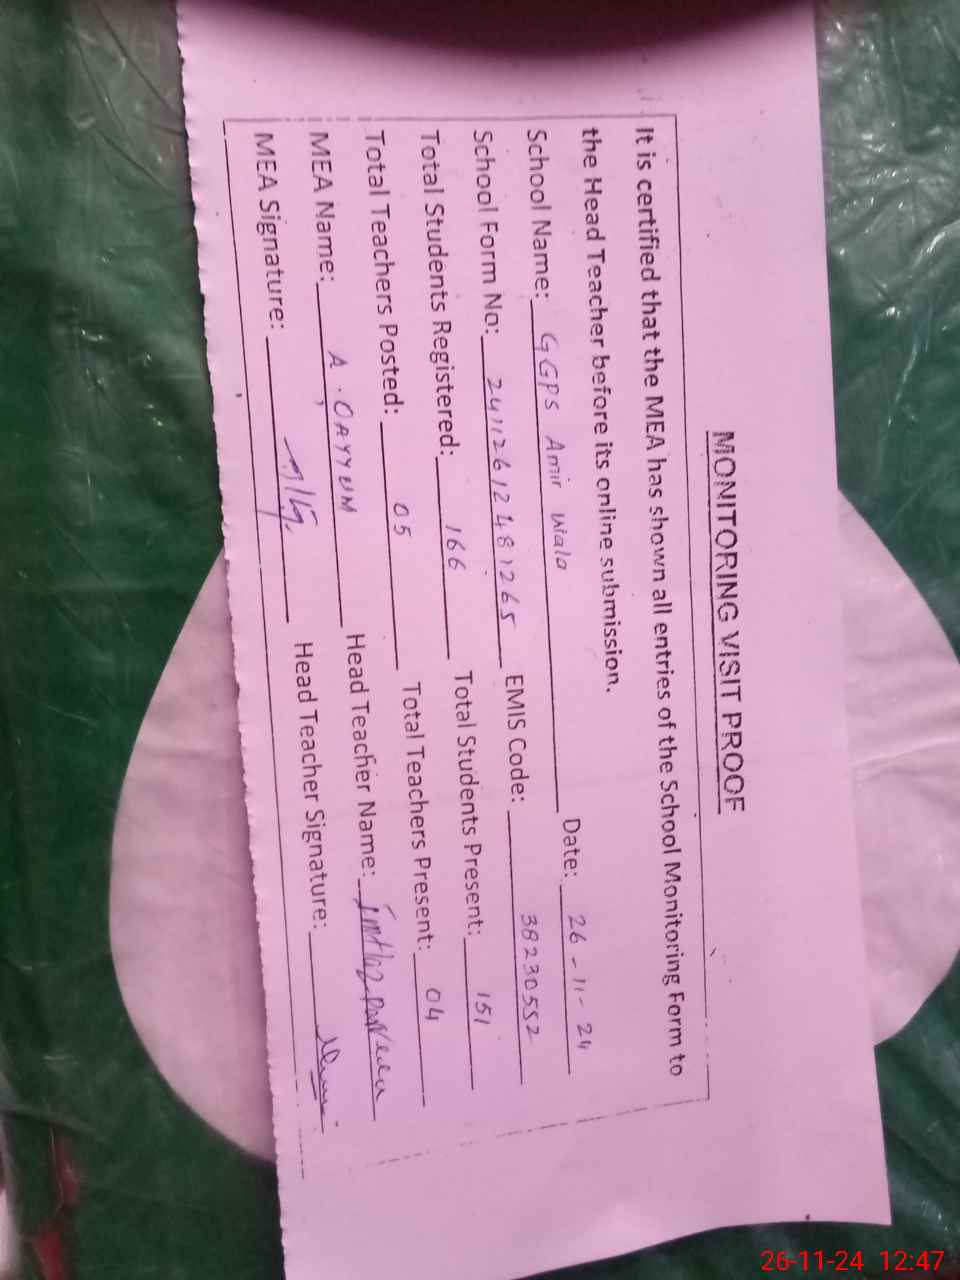 MONITORING VISIT PROOF
It is certified that the MEA has shown all entries of the School Monitoring Form to
the Head Teacher before its online submission.
School Name: GGPS Amir wala Date: 26-11-24
School Form No: 24112612481265 EMIS Code: 38230552
Total Students Registered: 166 Total Students Present: 151
Total Teachers Posted: 05 Total Teachers Present: 04
MEA Name: A. QAYYUM Head Teacher Name: Imtiaz Parveen
MEA Signature: Head Teacher Signature:
26-11-24 12:47